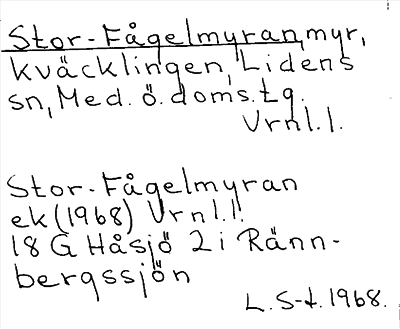 Stor-Fågelmyran, myr,
Kväcklingen, Lidens
sn, Med. ö. doms. tg.
Vrnl.l.
Stor-Fågelmyran
ek (1968) Vrnl.l.
18 G Håsjö 2 i Ränn-
bergssjön
L. S-t. 1968.